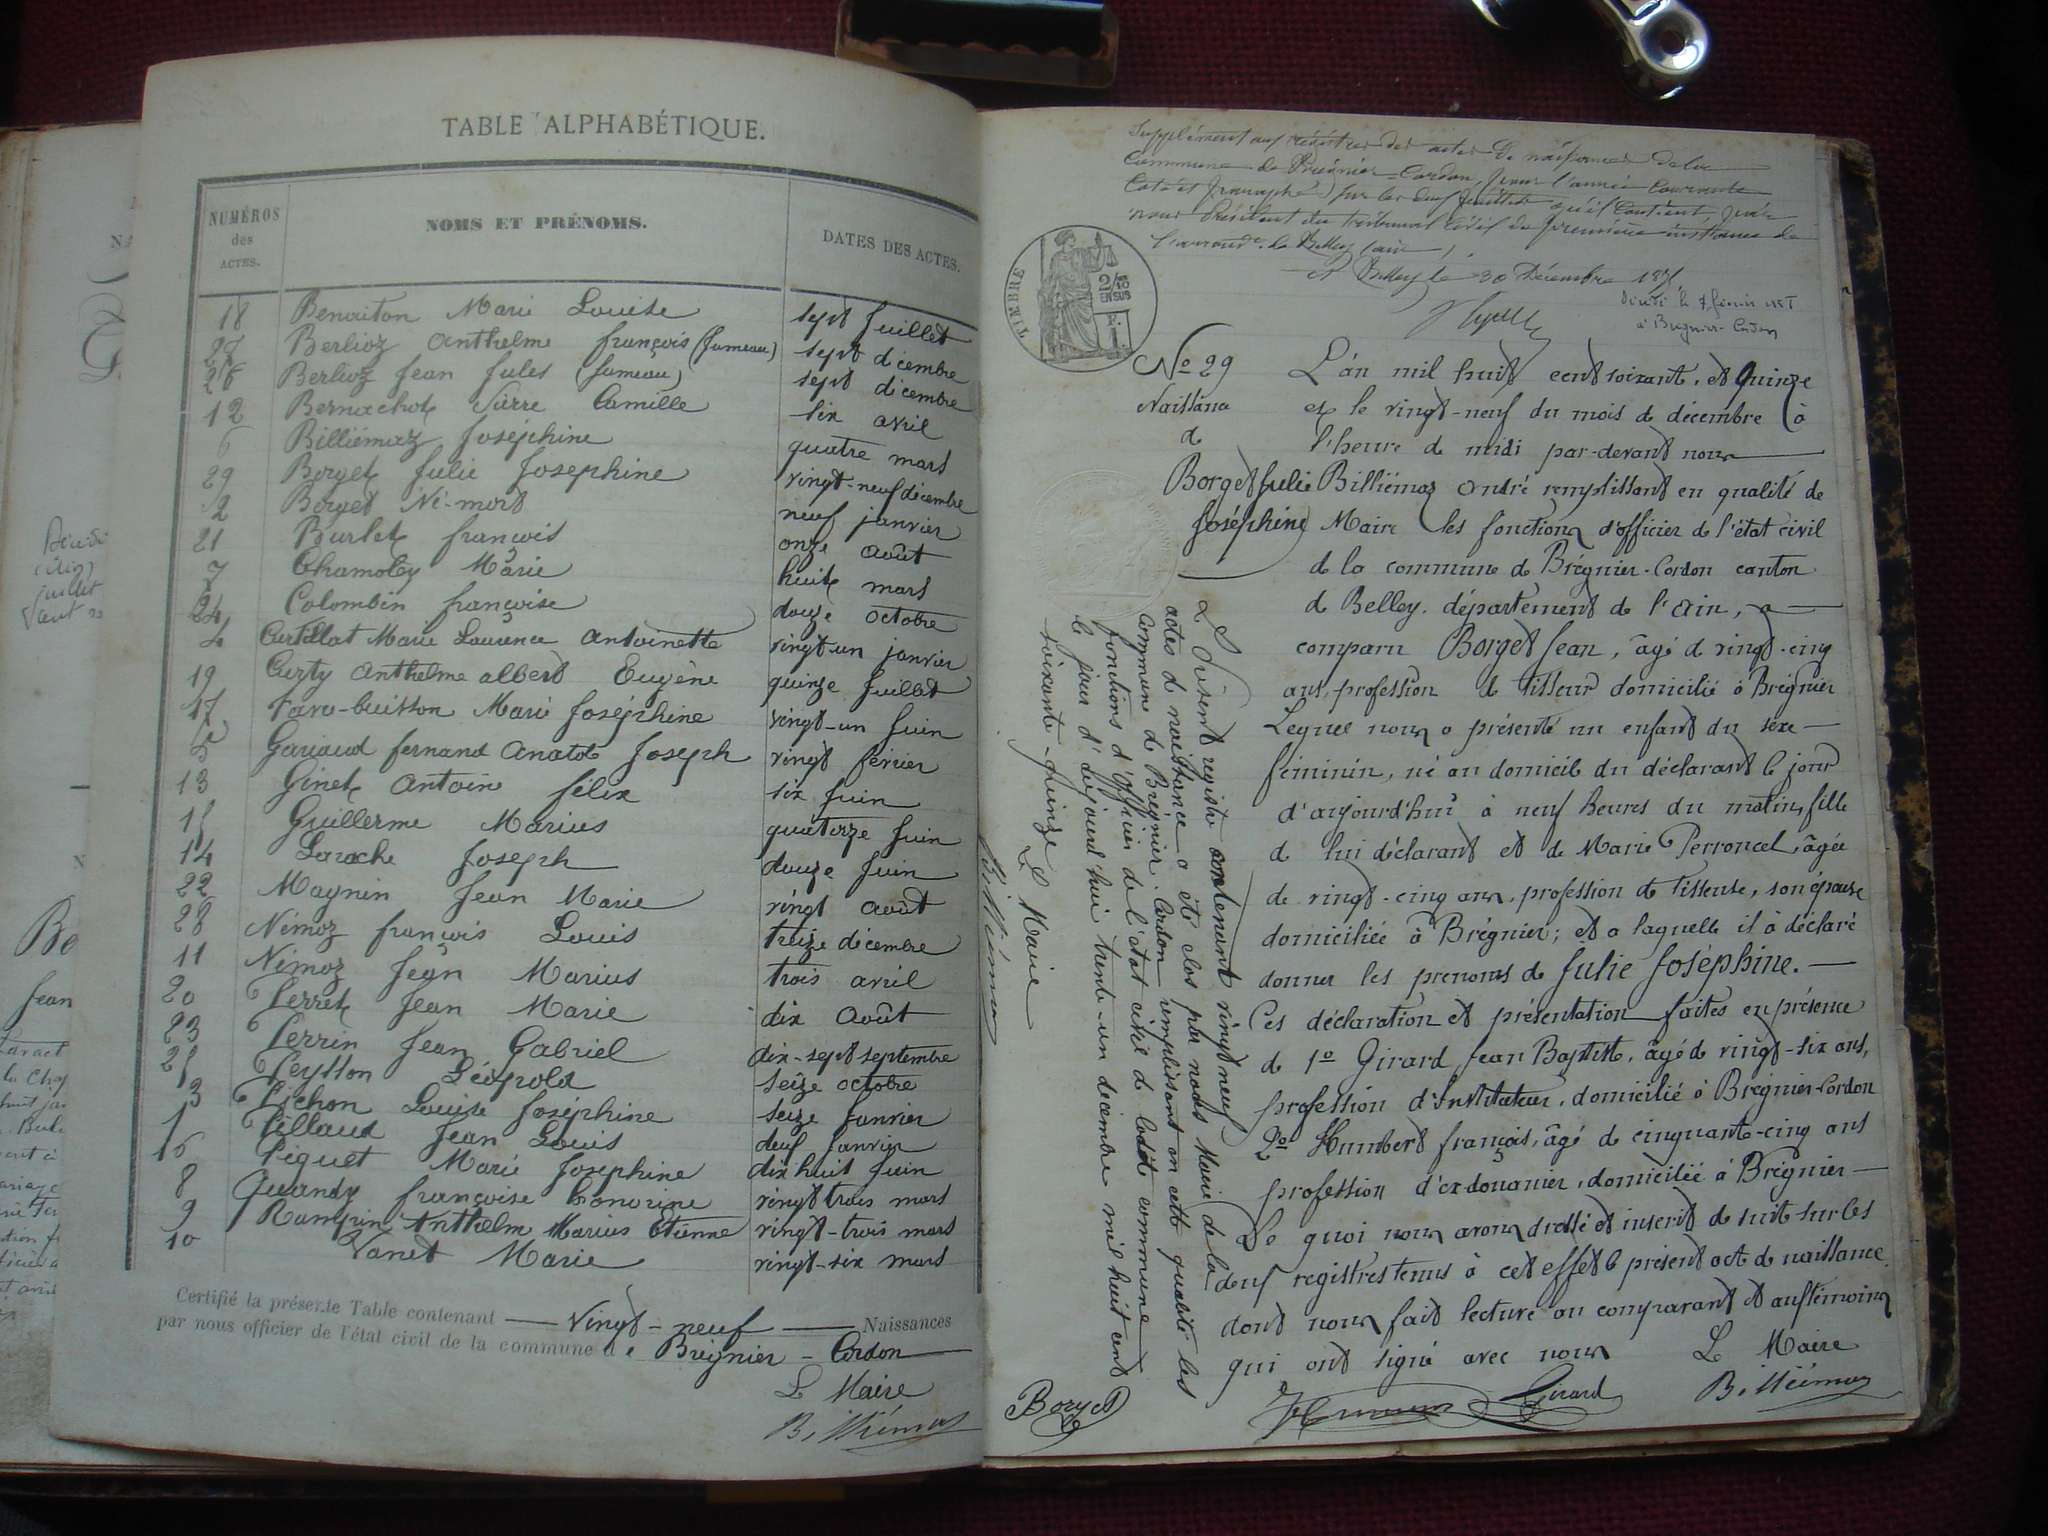 TABLE ALPHABÉTIQUE.
NUMÉROS des ACTES.
NOMS ET PRÉNOMS.
DATES DES ACTES.
18 Benoiton Marie Louise sept Juillet
27 Berlioz Anthelme françois (Jumeau) sept décembre
26 Berlioz Jean Jules (Jumeau) sept décembre
12 Camille six avril
6 Billiémaz Joséphine quatre mars
29 Borget Julie Josephine vingt-neuf décembre
2 Borget Né-mort neuf janvier
21 Burlet françois onze Août
7 Marie huit mars
24 Colombin françoise douze octobre
4 Curtillat Marie Laurence Antoinette vingt-un janvier
19 Curty Anthelme albert Eugène quinze Juillet
17 Marie Joséphine vingt-un Juin
5 fernand Anatole Joseph vingt février
13 Ginet Antoine félix six Juin
15 Guillerme Marius quatorze Juin
14 Laroche Joseph douze Juin
22 Magnin Jean Marie vingt août
28 Némoz françois Louis treize décembre
11 Némoz Jean Marius trois avril
20 Perret Jean Marie dix Août
23 Perrin Jean Gabriel dix-sept septembre
25 Peysson Léopold seize octobre
3 Pichon Louise Joséphine seize Janvier
1 Pillaud Jean Louis deux Janvier
16 Piquet Marie Josephine dix huit Juin
8 Quandy françoise honorine vingt trois mars
9 Rampin Anthelm Marius Etienne vingt-trois mars
10 Vanet Marie vingt-six mars
Certifié la présente Table contenant — Vingt-neuf — Naissances
par nous officier de l'état civil de la commune de Bregnier-Cordon
Le Maire
Billiémaz
Supplément aux registres des actes de naissances de la
Commune de Brégnier-Cordon, pour l'année courante
Coté et paraphé sur les deux feuillets qu'il contient, par
nous Président du tribunal civil de première instance de
l'arrond.t de Belley (ain)
A Belley le 30 Décembre 1875
à Bregnier-Cordon
TIMBRE
2/10
EN SUS
No 29
Naissance
de
Borget Julie
Joséphine
L'an mil huit cent soixante, et quinze
et le vingt-neuf du mois de décembre à
l'heure de midi par-devant nous
Billiémaz André remplissant en qualité de
Maire les fonctions d'officier de l'état civil
de la commune de Brégnier-Cordon canton
de Belley, département de l'Ain, a
comparu Borget Jean, âgé de vingt-cinq
ans, profession de Tisseur domicilié à Brégnier
Lequel nous a présenté un enfant du sexe
féminin, né au domicile du déclarant le jour
d'aujourd'hui à neuf heures du matin, fille
de lui déclarant et de Marie Perroncel, âgée
de vingt-cinq ans, profession de Tisseuse, son épouse
domiciliée à Brégnier; et a laquelle il à déclaré
donner les prenoms de Julie Joséphine.
Ces déclaration et présentation faites en présence
de 1o Girard Jean Baptiste, âgé de vingt-six ans,
profession d'Instituteur, domicilié à Bregnier-Cordon
2o Humbert françois, âgé de cinquante-cinq ans
profession d'ex-douanier, domiciliée à Brégnier
De quoi nous avons dressé et inscrit de suite sur les
deux registres tenus à cet effet le présent acte de naissance
dont nous fait lecture au comparant et aux témoins
qui ont signé avec nous
Le Maire
Borget
Girard
Billiémaz
Le présent registre contenant vingt neuf
actes de naissance a été clos par nous Maire de la
commune de Brégnier-Cordon remplissant en cette qualité les
fonctions d'Officier de l'état civil de ladite commune
le jour d'aujourd'hui trente-un décembre mil huit cent
soixante-quinze
Le Maire
Billiémaz